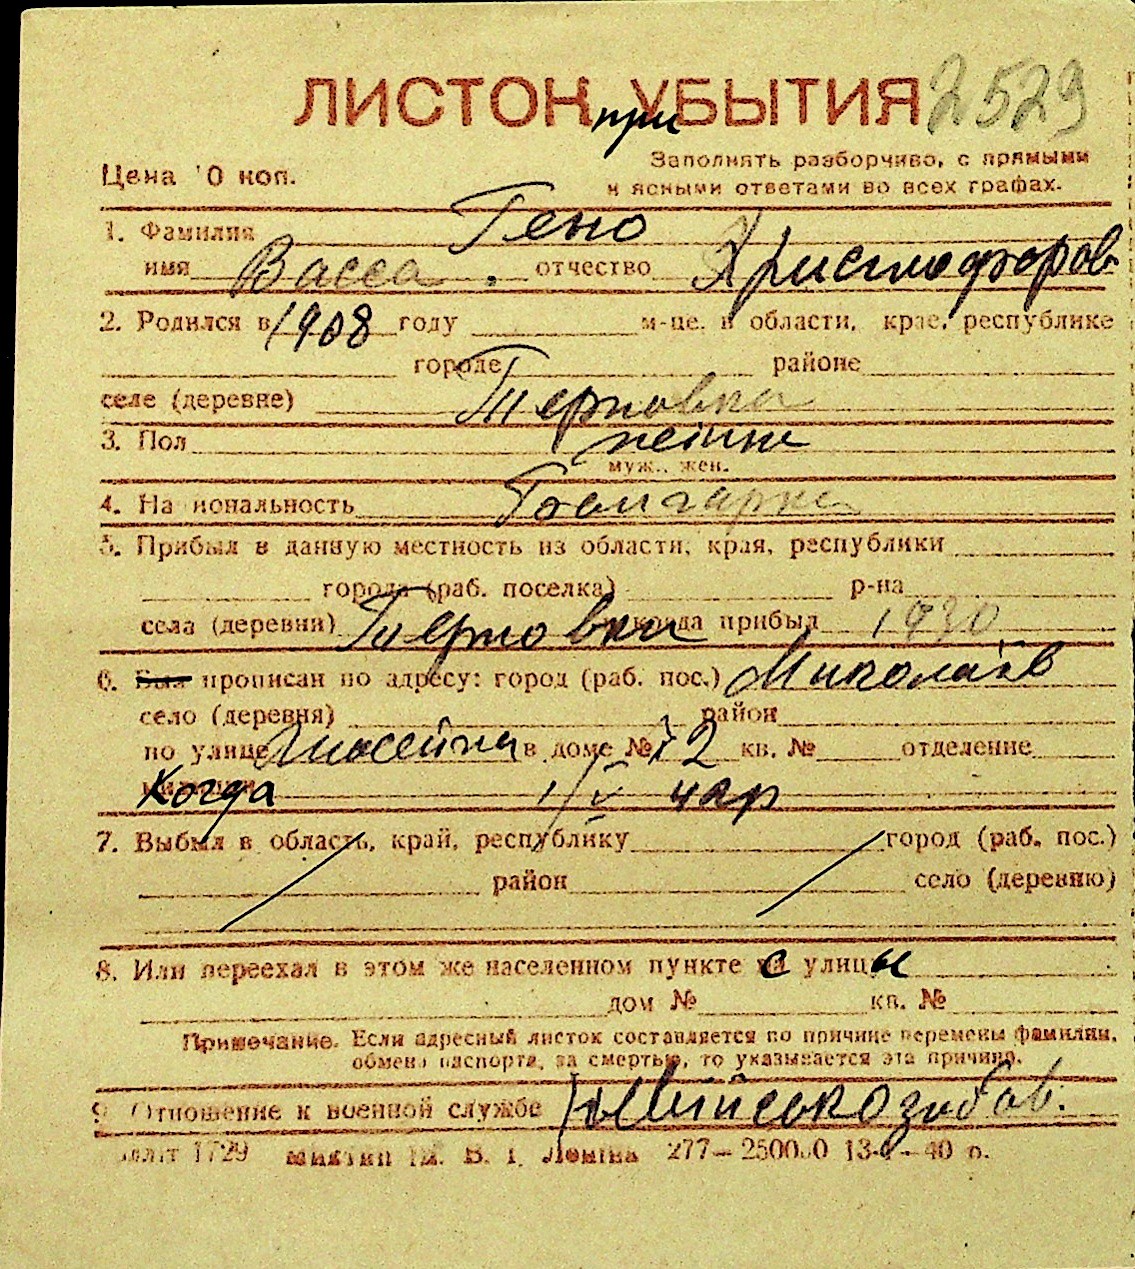 ЛИСТОК при УБЫТИЯ 2529
Цена 10 коп.
Заполнять разборчиво, с прямыми
и ясными ответами во всех графах.
1. Фамилия Гено
имя Васса. отчество Христофоров
2. Родился в 1908 году м-це. в области, крае, республике
городе районе
селе (деревне) Терновка
3. Пол
муж., жен.
4. Национальность Болгарка
5. Прибыл в данную местность из области, края, республики
города (раб. поселка) р-на
села (деревни) Терновки и когда прибыл 1930
6. Был прописан по адресу: город (раб. пос.) Миколаїв
село (деревня) район
по улице в доме № 72 кв. № отделение
милиции Когда 1/V
7. Выбыл в область, край, республику город (раб. пос.)
район село (деревню)
8. Или переехал в этом же населенном пункте с улицы
дом № кв. №
Примечание. Если адресный листок составляется по причине перемены фамилии,
обмена паспорта, за смертью, то указывается эта причина.
9. Отношение к военной службе Не військозобов.
1729 им. В. І. Леніна 277—250000 13- —40 р.